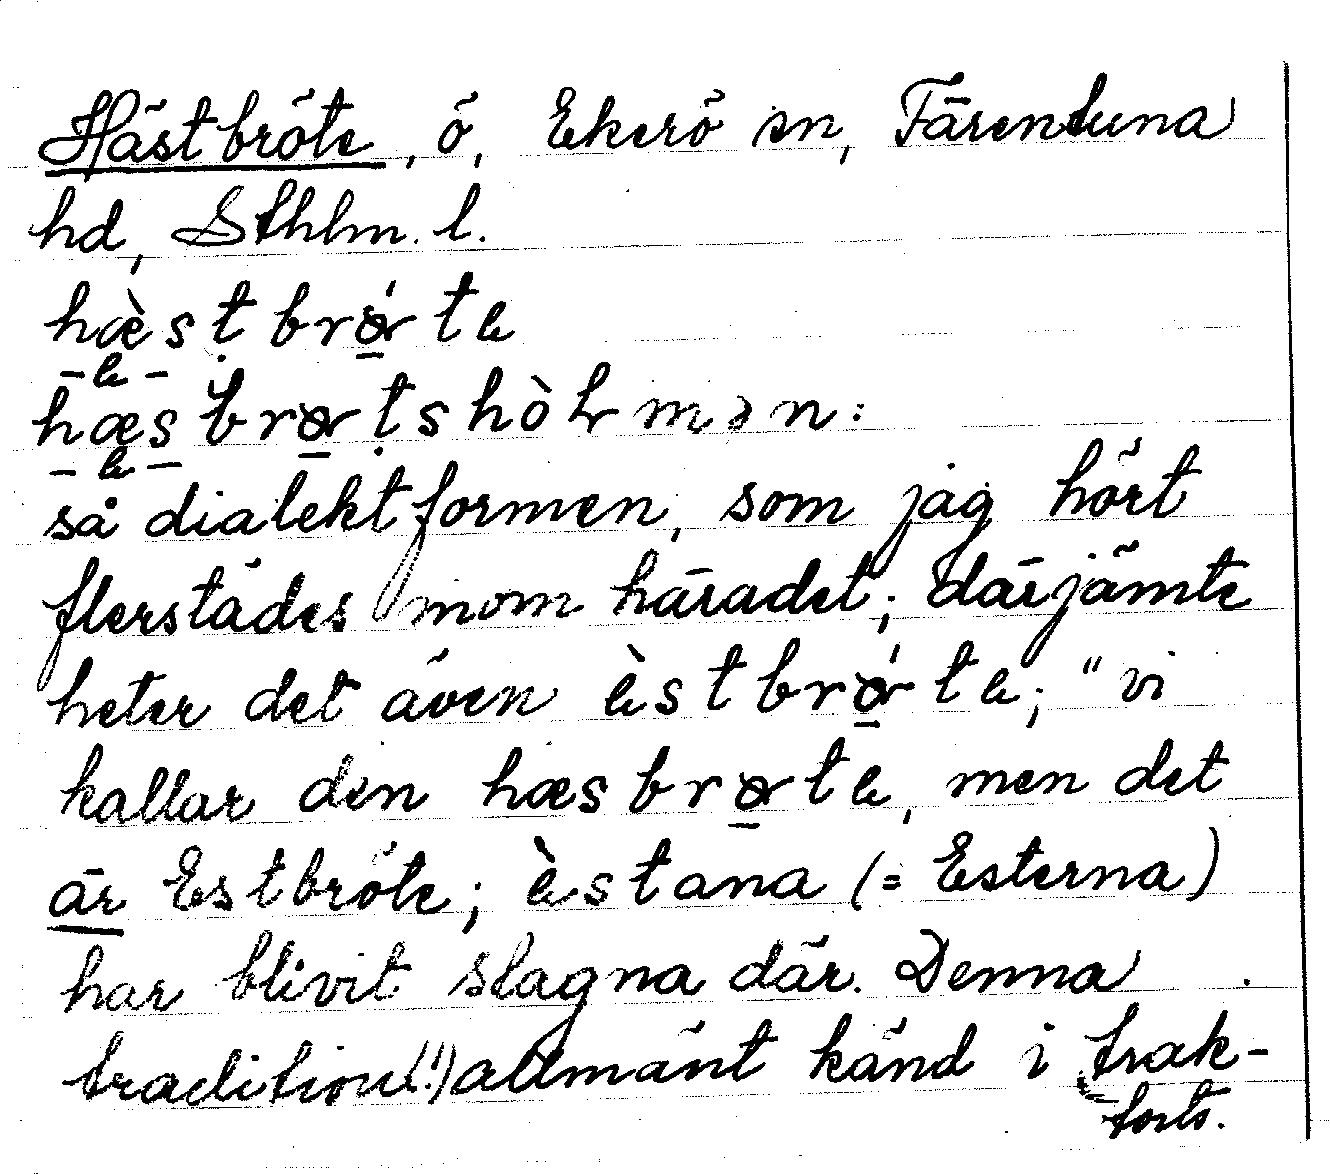 Hästbröte, ö, Ekerö sn, Färentuna
hd, Sthlm. l.
hæ̀sṭbrǿ̱te
-e-
hæsbrø̱ṭshòlmən:
-e-
så dialektformen, som jag hört
flerstädes inom häradet; därjämte
heter det även èstbrǿ̱te; "vi
kallar den hæsbrø̱te, men det
är Estbröte; èstana (= Esterna)
har blivit slagna där. Denna
tradition(!) allmänt känd i trak-
forts.